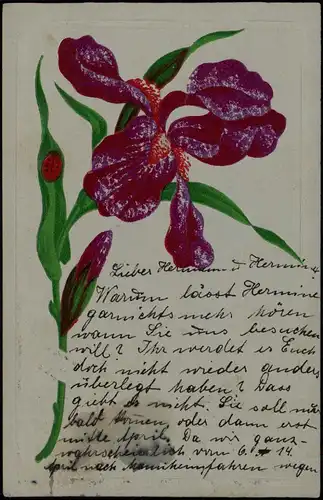 Lieber Hermann u Hermine
Warum lässt Hermine
garnichts mehr hören
wann Sie uns besuchen
will? Ihr werdet es Euch
doch nicht wieder anders
überlegt haben? Dass
giebt es nicht. Sie soll nur
bald kommen, oder dann erst
mitte April. Da wir ganz
wahrscheinlich vom 6. 14
April nach fahren wegen